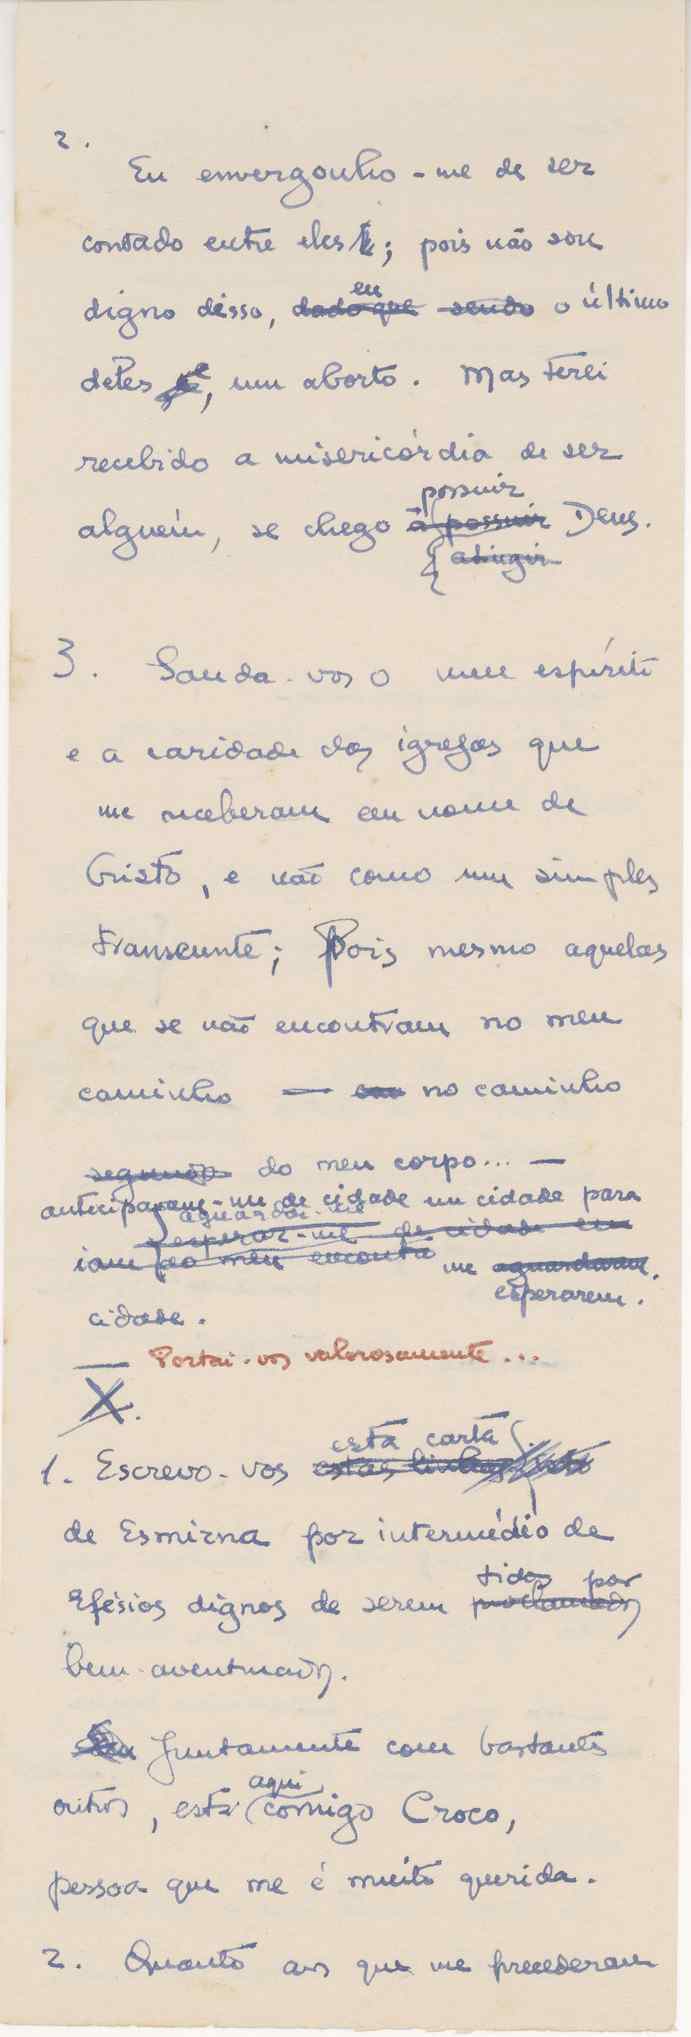 2.
Eu envergonho-me de ser
contado entre eles; pois não sou
eu
digno disso, dado que sendo o último
deles, e um aborto. Mas terei
recebido a misericórdia de ser
possuir
alguém, se chego a possuir Deus.
atingir
3. Sauda-vos o meu espírito
e a caridade das igrejas que
me receberam em nome de
Cristo, e não como um simples
transeunte; Pois mesmo aquelas
que se não encontram no meu
caminho — no caminho
segundo do meu corpo... —
anteciparam-me de cidade em cidade para
aguardar-me
esperar-me de cidade em
iam ao meu encontro me aguardarem.
esperarem.
cidade.
— Portai-vos valorosamente...
X.
esta carta
1. Escrevo-vos estas linhas
de Esmirna por intermédio de
tidos por
Efésios dignos de serem proclamados
bem-aventurados.
Juntamente com bastantes
aqui
outros, está comigo Croco,
pessoa que me é muito querida.
2. Quanto aos que me precederam